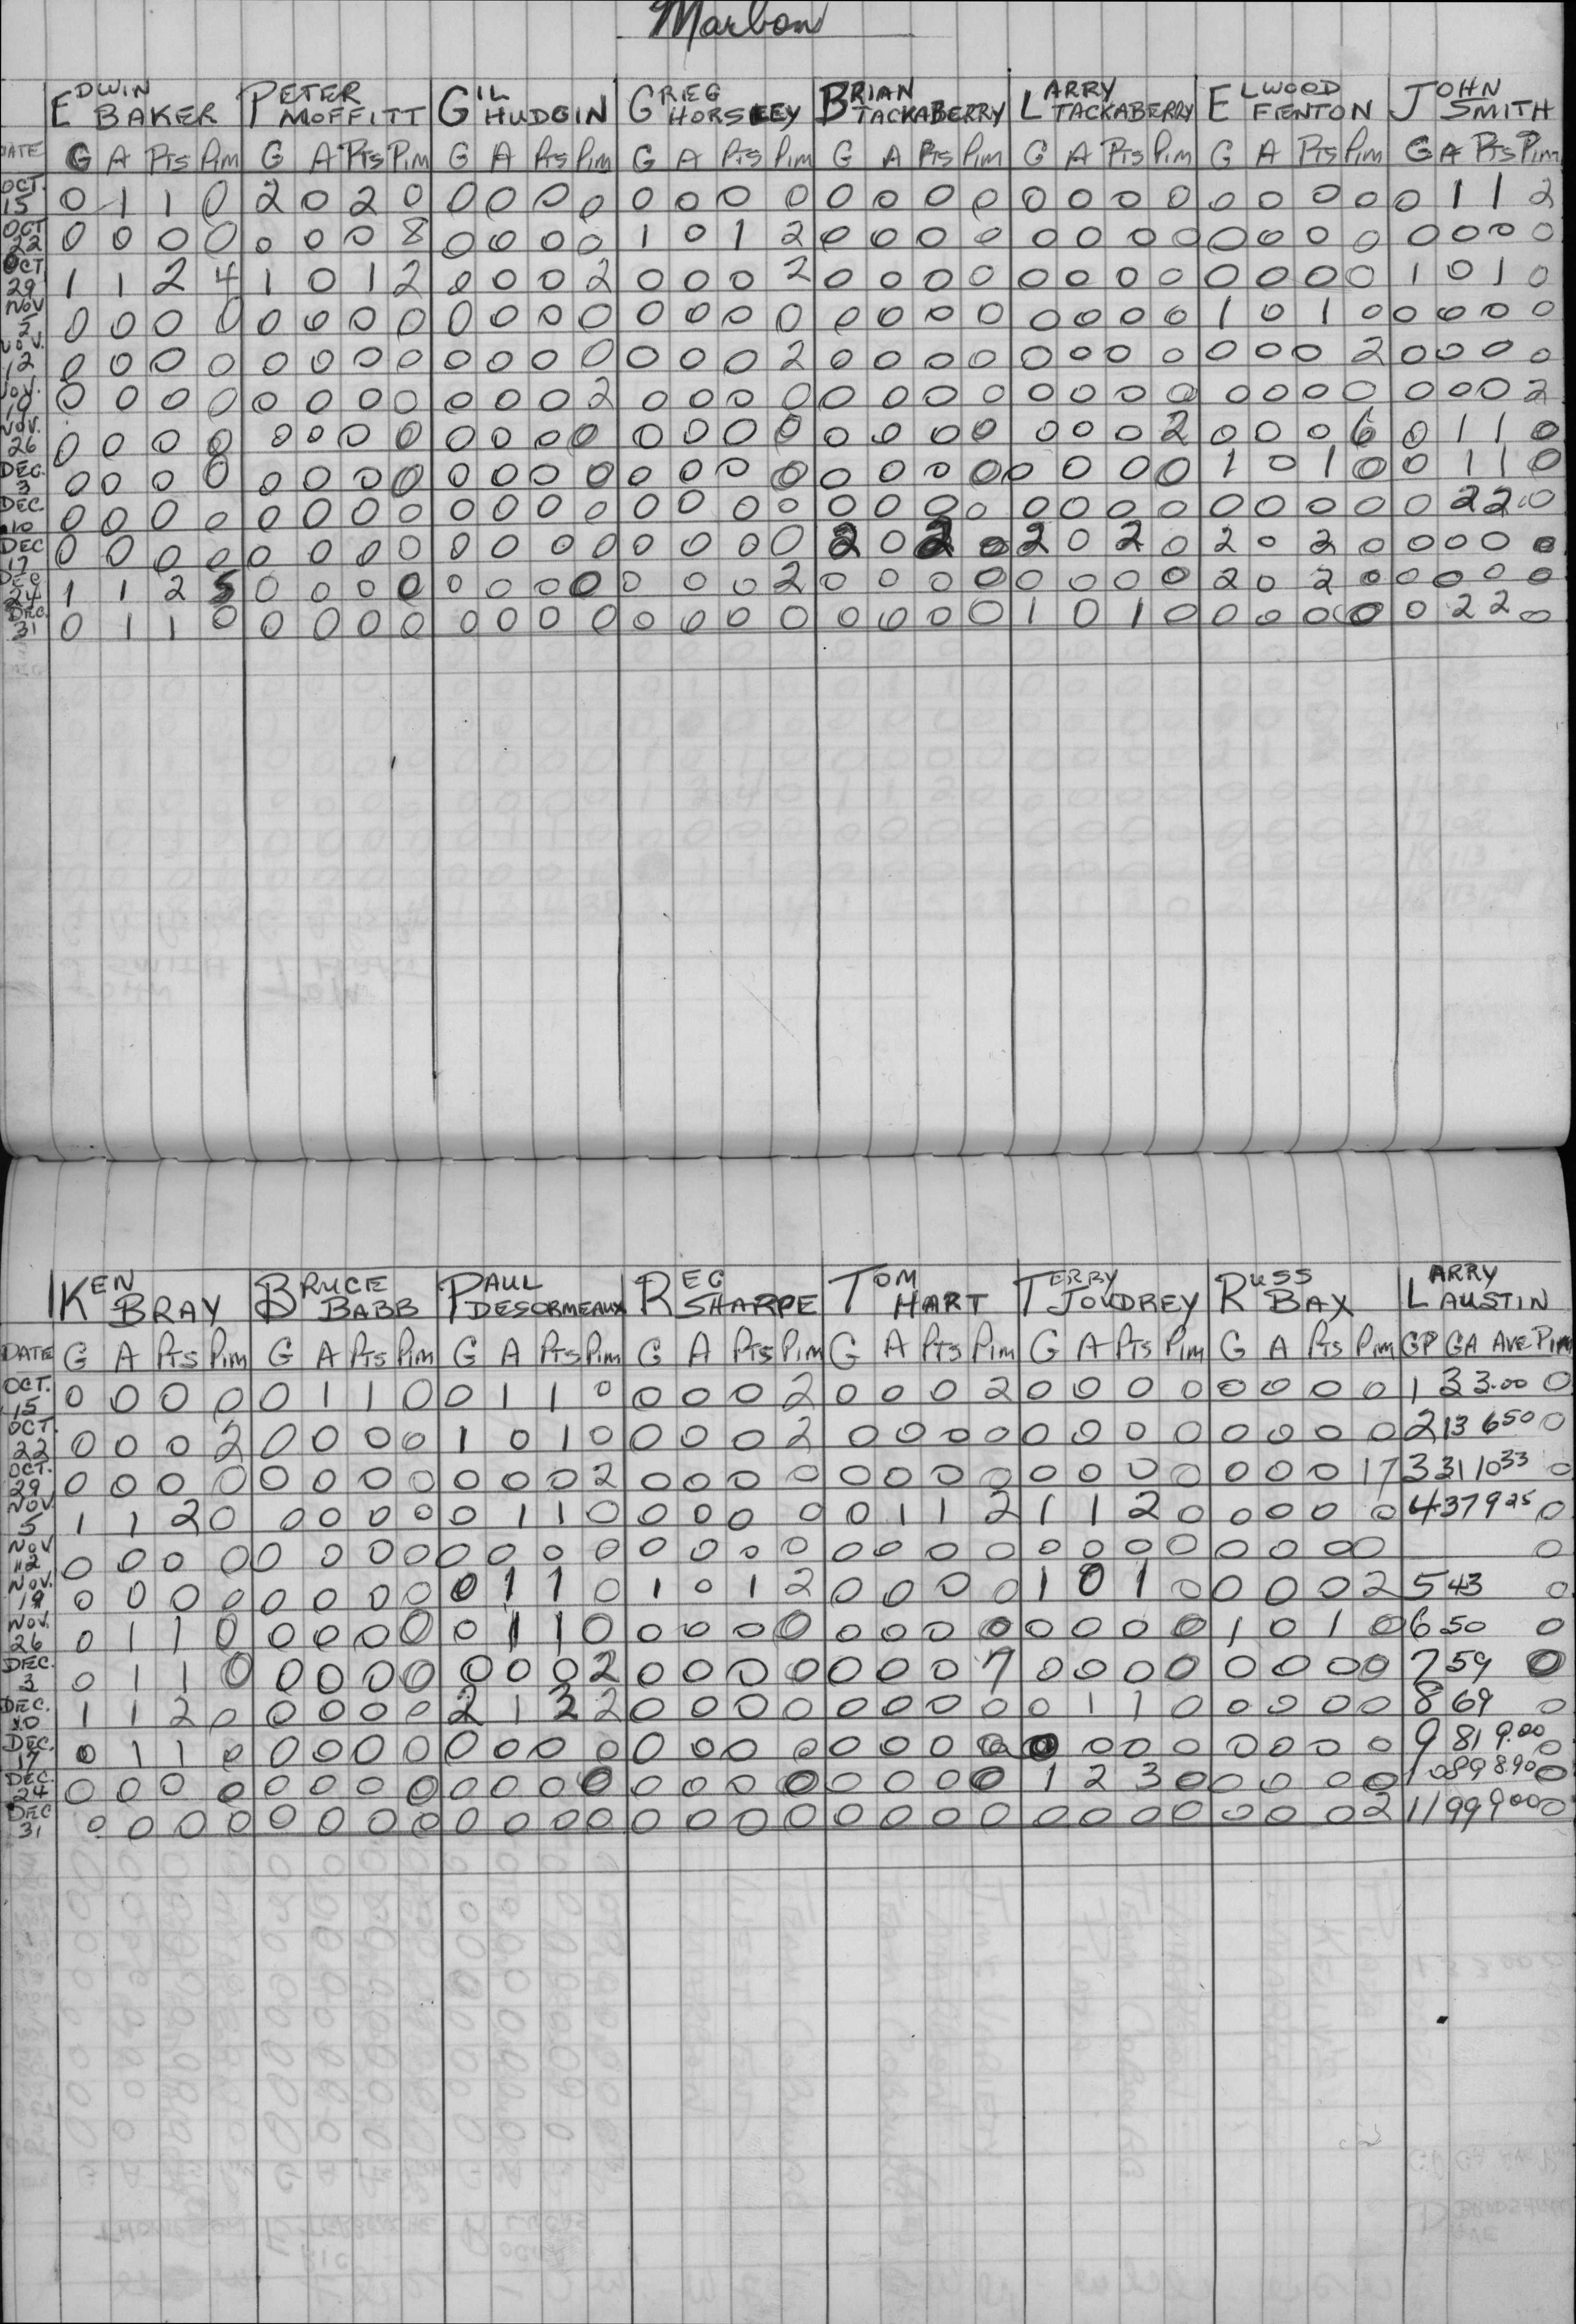 Marbon
EDWIN BAKER PETER MOFFITT GIL HUDGIN GREG HORSLEY BRIAN TACKABERRY LARRY TACKABERRY ELWOOD FENTON JOHN SMITH
DATE G A Pts Pim G A Pts Pim G A Pts Pim G A Pts Pim G A Pts Pim G A Pts Pim G A Pts Pim G A Pts Pim
OCT. 15 0 1 1 0 2 0 2 0 0 0 0 0 0 0 0 0 0 0 0 0 0 0 0 0 0 0 0 0 0 1 1 2
OCT 22 0 0 0 0 0 0 0 8 0 0 0 0 1 0 1 2 0 0 0 0 0 0 0 0 0 0 0 0 0 0 0 0
OCT 29 1 1 2 4 1 0 1 2 0 0 0 2 0 0 0 2 0 0 0 0 0 0 0 0 0 0 0 0 1 0 1 0
NOV 5 0 0 0 0 0 0 0 0 0 0 0 0 0 0 0 0 0 0 0 0 0 0 0 0 1 0 1 0 0 0 0 0
NOV. 12 0 0 0 0 0 0 0 0 0 0 0 0 0 0 0 2 0 0 0 0 0 0 0 0 0 0 0 2 0 0 0 0
NOV. 19 0 0 0 0 0 0 0 0 0 0 0 2 0 0 0 0 0 0 0 0 0 0 0 0 0 0 0 0 0 0 0 2
NOV. 26 0 0 0 0 0 0 0 0 0 0 0 0 0 0 0 0 0 0 0 0 0 0 0 2 0 0 0 6 0 1 1 0
DEC. 3 0 0 0 0 0 0 0 0 0 0 0 0 0 0 0 0 0 0 0 0 0 0 0 0 1 0 1 0 0 1 1 0
DEC. 10 0 0 0 0 0 0 0 0 0 0 0 0 0 0 0 0 0 0 0 0 0 0 0 0 0 0 0 0 0 2 2 0
DEC 17 0 0 0 0 0 0 0 0 0 0 0 0 0 0 0 0 2 0 2 0 2 0 2 0 2 0 2 0 0 0 0 0
DEC 24 1 1 2 5 0 0 0 0 0 0 0 0 0 0 0 2 0 0 0 0 0 0 0 0 2 0 2 0 0 0 0 0
DEC. 31 0 1 1 0 0 0 0 0 0 0 0 0 0 0 0 0 0 0 0 0 1 0 1 0 0 0 0 0 0 2 2 0
KEN BRAY BRUCE BABB PAUL DESORMEAUX REG SHARPE TOM HART TERRY JOUDREY RUSS BAX LARRY AUSTIN
DATE G A Pts Pim G A Pts Pim G A Pts Pim G A Pts Pim G A Pts Pim G A Pts Pim G A Pts Pim GP GA AVE Pim
OCT. 15 0 0 0 0 0 1 1 0 0 1 1 0 0 0 0 2 0 0 0 2 0 0 0 0 0 0 0 0 1 3 3.00 0
OCT 22 0 0 0 2 0 0 0 0 1 0 1 0 0 0 0 2 0 0 0 0 0 0 0 0 0 0 0 0 2 13 650 0
OCT. 29 0 0 0 0 0 0 0 0 0 0 0 2 0 0 0 0 0 0 0 0 0 0 0 0 0 0 0 17 3 31 1033 0
NOV 5 1 1 2 0 0 0 0 0 0 1 1 0 0 0 0 0 0 1 1 2 1 1 2 0 0 0 0 0 4 37 925 0
NOV 12 0 0 0 0 0 0 0 0 0 0 0 0 0 0 0 0 0 0 0 0 0 0 0 0 0 0 0 0 0
NOV. 19 0 0 0 0 0 0 0 0 0 1 1 0 1 0 1 2 0 0 0 0 1 0 1 0 0 0 0 2 5 43 0
NOV. 26 0 1 1 0 0 0 0 0 0 1 1 0 0 0 0 0 0 0 0 0 0 0 0 0 1 0 1 0 6 50 0
DEC. 3 0 1 1 0 0 0 0 0 0 0 0 2 0 0 0 0 0 0 0 7 0 0 0 0 0 0 0 0 7 59 0
DEC. 10 1 1 2 0 0 0 0 0 2 1 3 2 0 0 0 0 0 0 0 0 0 1 1 0 0 0 0 0 8 69 0
DEC. 17 0 1 1 0 0 0 0 0 0 0 0 0 0 0 0 0 0 0 0 0 0 0 0 0 0 0 0 0 9 81 9.00 0
DEC. 24 0 0 0 0 0 0 0 0 0 0 0 0 0 0 0 0 0 0 0 0 1 2 3 0 0 0 0 0 10 89 890 0
DEC 31 0 0 0 0 0 0 0 0 0 0 0 0 0 0 0 0 0 0 0 0 0 0 0 0 0 0 0 2 11 99 900 0